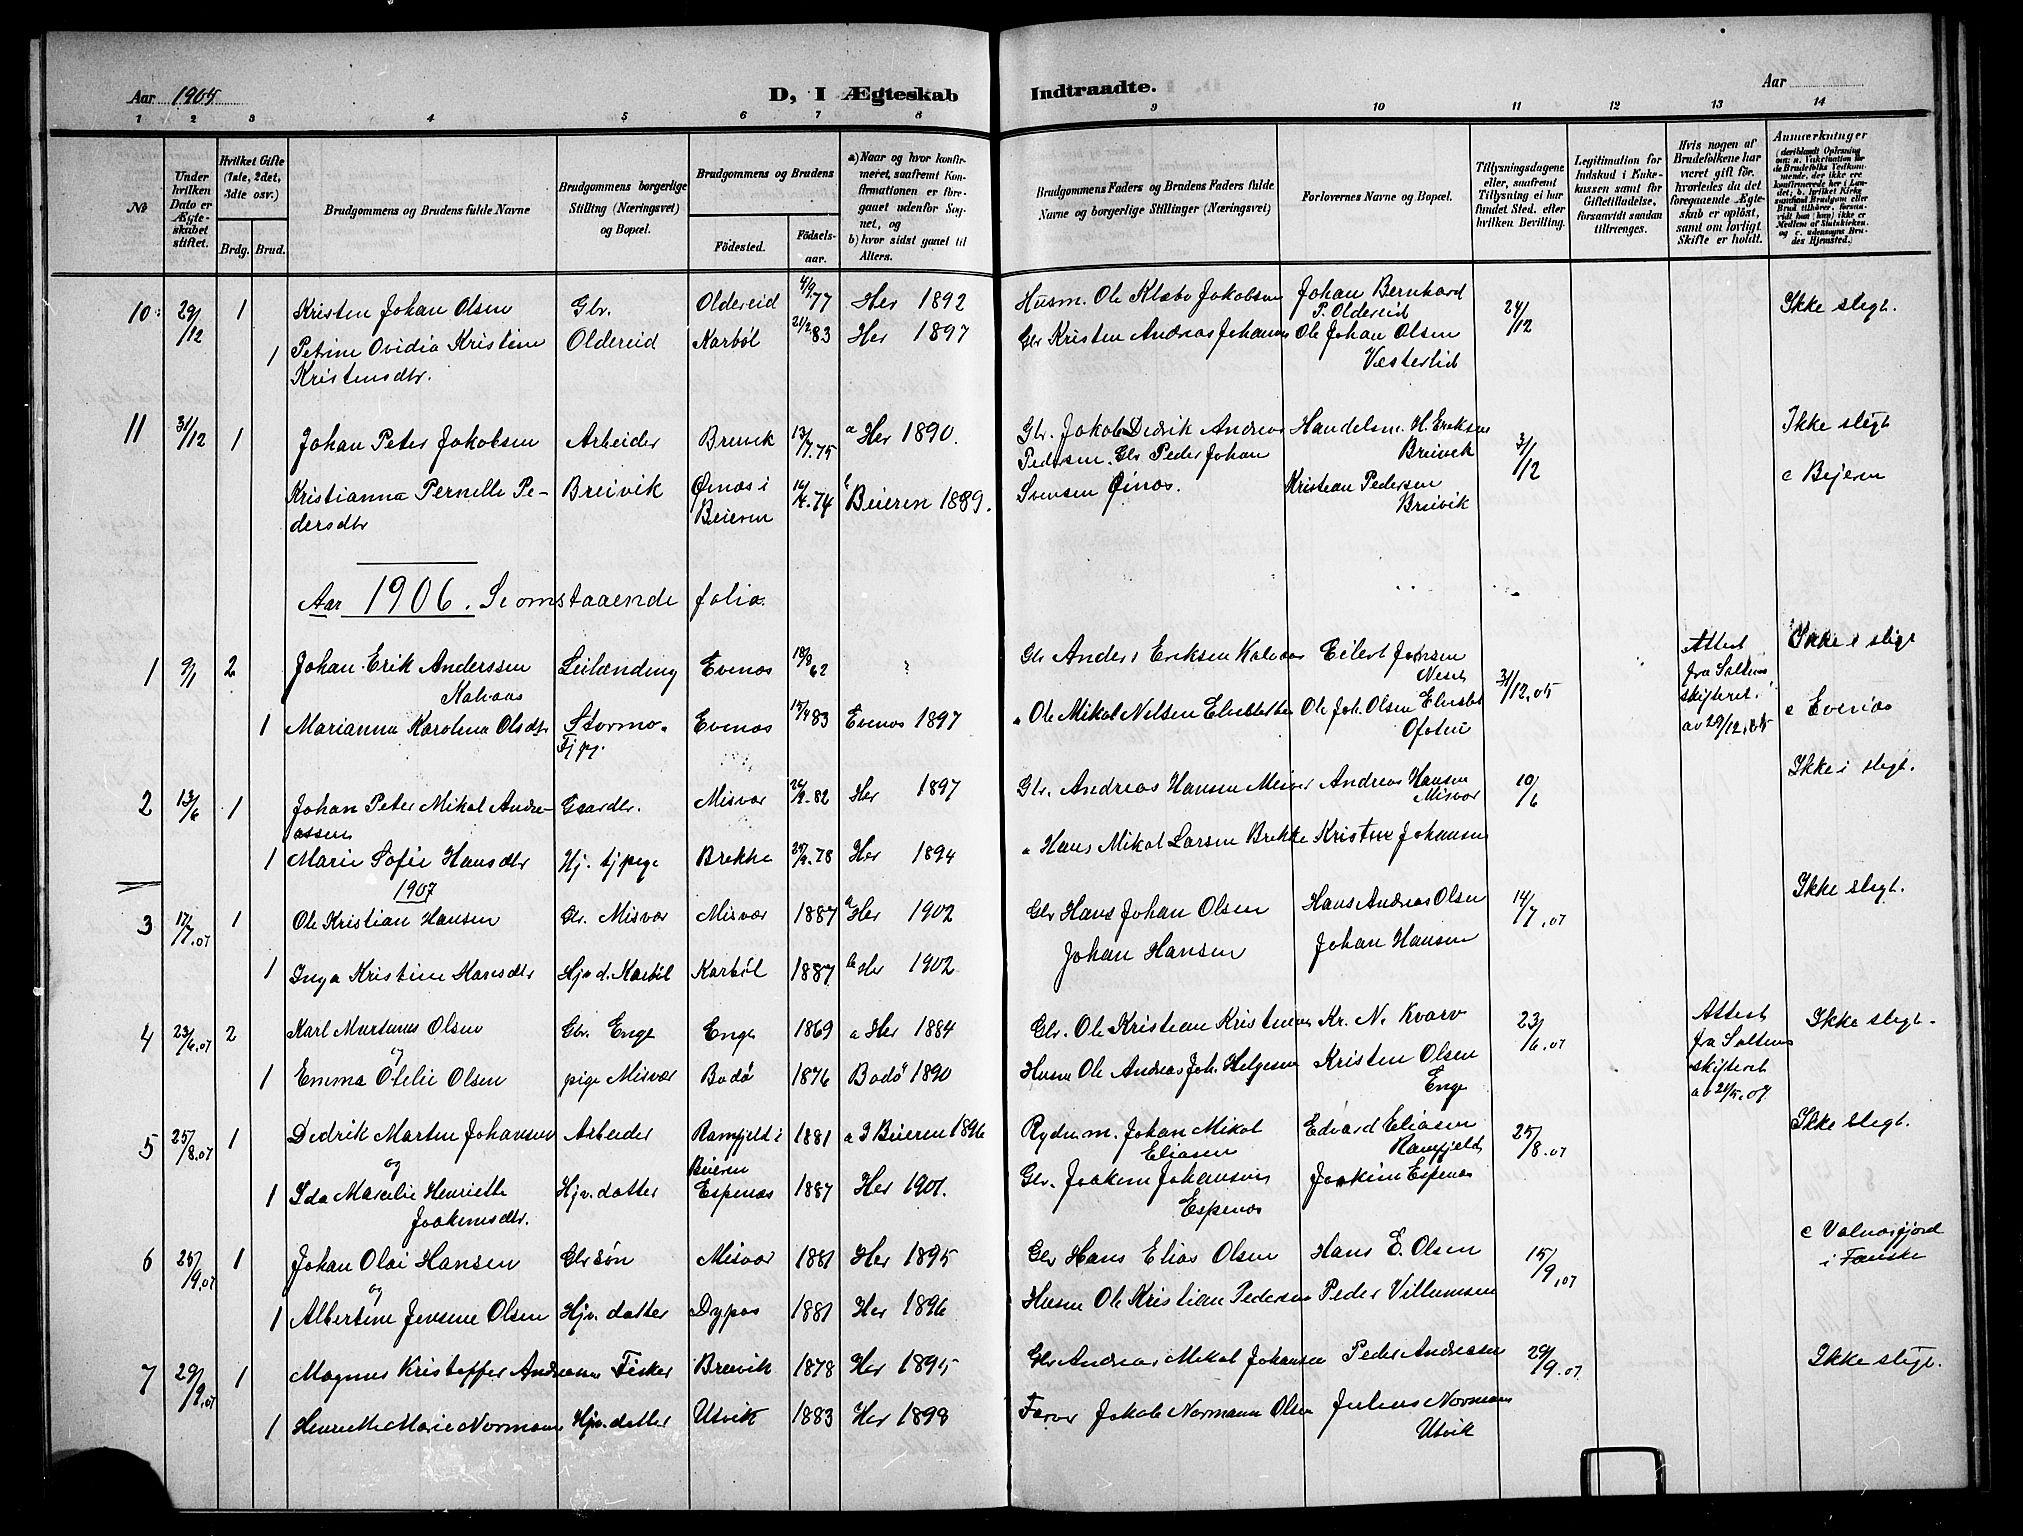 Aar 1905
D, I Ægteskab Indtraadte.
Aar
1 2 3 4 5 6 7 8 9 10 11 12 13 14
№
Under hvilken Dato er Ægteskabet stiftet.
Hvilket Gifte (1ste, 2det, 3die osv.)
Brdg. Brud.
Brudgommens og Brudens fulde Navne
Brudgommens borgerlige Stilling (Næringsvei) og Bopæl.
Brudgommens og Brudens
Fødested.
Fødselsaar.
a) Naar og hvor konfirmeret, saafremt Konfirmationen er foregaaet udenfor Sognet, og
b) hvor sidst gaaet til Alters.
Brudgommens Faders og Brudens Faders fulde Navne og borgerlige Stillinger (Næringsvei)
Forlovernes Navne og Bopæl.
Tillysningsdagene eller, saafremt Tillysning ei har fundet Sted, efter hvilken Bevilling.
Legitimation for Indskud i Enkekassen samt for Giftetilladelse, forsaavidt saadan tiltrænges.
Hvis nogen af Brudefolkene har været gift før, hvorledes da det foregaaende Ægteskab er opløst, samt om lovligt Skifte er holdt.
Anmærkninger
10 29/12 1 Kristen Johan Olsen Gbr. Oldereid 4/9 77 Her 1892 Husm. Ole Klæbo Jakobsen Johan Bernhard P. Oldereid 24/12 Ikke slegt.
1 Petrine Ovidia Kristine Kristensdtr. Oldereid Karbøl 21/2 83 Her 1897 Gbr Kristen Andreas Johansen Ole Johan Olsen Vesterlid
11 31/12 1 Johan Peter Jakobsen Arbeider Breivik 13/7.75 a Her 1890. Gbr. Jakob Dedrik Andreas Pedersen. Handelsm. H. Eriksen Breivik 31/12 Ikke slegt
Kristianna Pernelle Pedersdtr Breivik Øinæs i Beieren 16/4.74 Beieren 1889. Gbr Peder Johan Svensen Øinæs. Kristian Pedersen Breivik c Bejeren
Aar 1906. Se omstaaende folio.
1 9/1 2 Johan Erik Anderssen Kalvaas Leilænding Evenæs 18/8 62 Gbr Anders Eriksen Kalvaas Eilert Jensen Neset 31/12.05 Attest fra Saltens skifteret av 29/12.05 Ikke i slegt
1 Marianna Karolina Olsdtr Stormo. Tjpg. Evenæs 15/4 83 Evenæs 1897 " Ole Mikal Nilsen Ole Joh. Olsen Ofoten c Evenæs
2 13/6 1 Johan Peter Mikal Andreassen Gaardbr. Misvær 82 Her 1897 Gbr. Andreas Hansen Misvær Andreas Hansen Misvær 10/6 Ikke i slegt.
1 Marie Sofie Hansdtr Hj. tjpige Brekke 78 Her 1894 " Hans Mikal Larsen Brekke Kristen Johansen
1907
3 17/7.07 1 Ole Kristian Hansen Gbr. Misvær Misvær 1887 a Her 1902 Gbr Hans Johan Olsen Hans Andreas Olsen 14/7.07 Ikke slegt.
1 Inga Kristine Hansdtr Hjv d. Karbøl Karbøl 1887 b Her 1902 Johan Hansen Johan Hansen
4 23/6.07 2 Karl Martinus Olsen Gbr. Enge Enge 1869 a Her 1884 Gbr. Ole Kristian Kristensen Kr. N. Kvarv 23/6.07 Attest fra Saltens skifteret av 21/5.07 Ikke slegt.
og
1 Emma Otelie Olsen pige Misvær Bodø 1876 Bodø 1890 Husm Ole Andreas Joh. Helgesen Kristen Olsen Enge
5 25/8.07 1 Dedrik Martin Johansen Arbeider Ramfjeld i Beieren 1881 a I Beieren 1896 Rydn.m. Johan Mikal Eliasen Edvard Eliasen Ramfjeld 25/8.07 Ikke slegt.
og
1 Ida Marcelie Henriette Joakimsdtr. Hjv. datter Espenæs 1887 Her 1901. Gbr. Joakim Johansen Espenæs Joakim Espenæs
6 25/9.07 1 Johan Olai Hansen Gbr søn Misvær 1881 Her 1895 Gbr Hans Elias Olsen Hans E. Olsen 15/9.07 c Valnæsfjord i Fauske
og
1 Albertine Jensine Olsen Hjv. datter Dypos 1881 Her 1896 Husm Ole Kristian Pedersen Peder Villumsen
7 29/9.07 1 Magnus Kristoffer Andreasen Fisker Breivik 1878 Her 1895 Gbr Andreas Mikal Johansen Peder Andreasen 29/9.07 Ikke slegt.
1 Henriette Marie Normann Hjv. datter Utvik 1883 Her 1898 Farver Jakob Normann Olsen Julius Normann Utvik